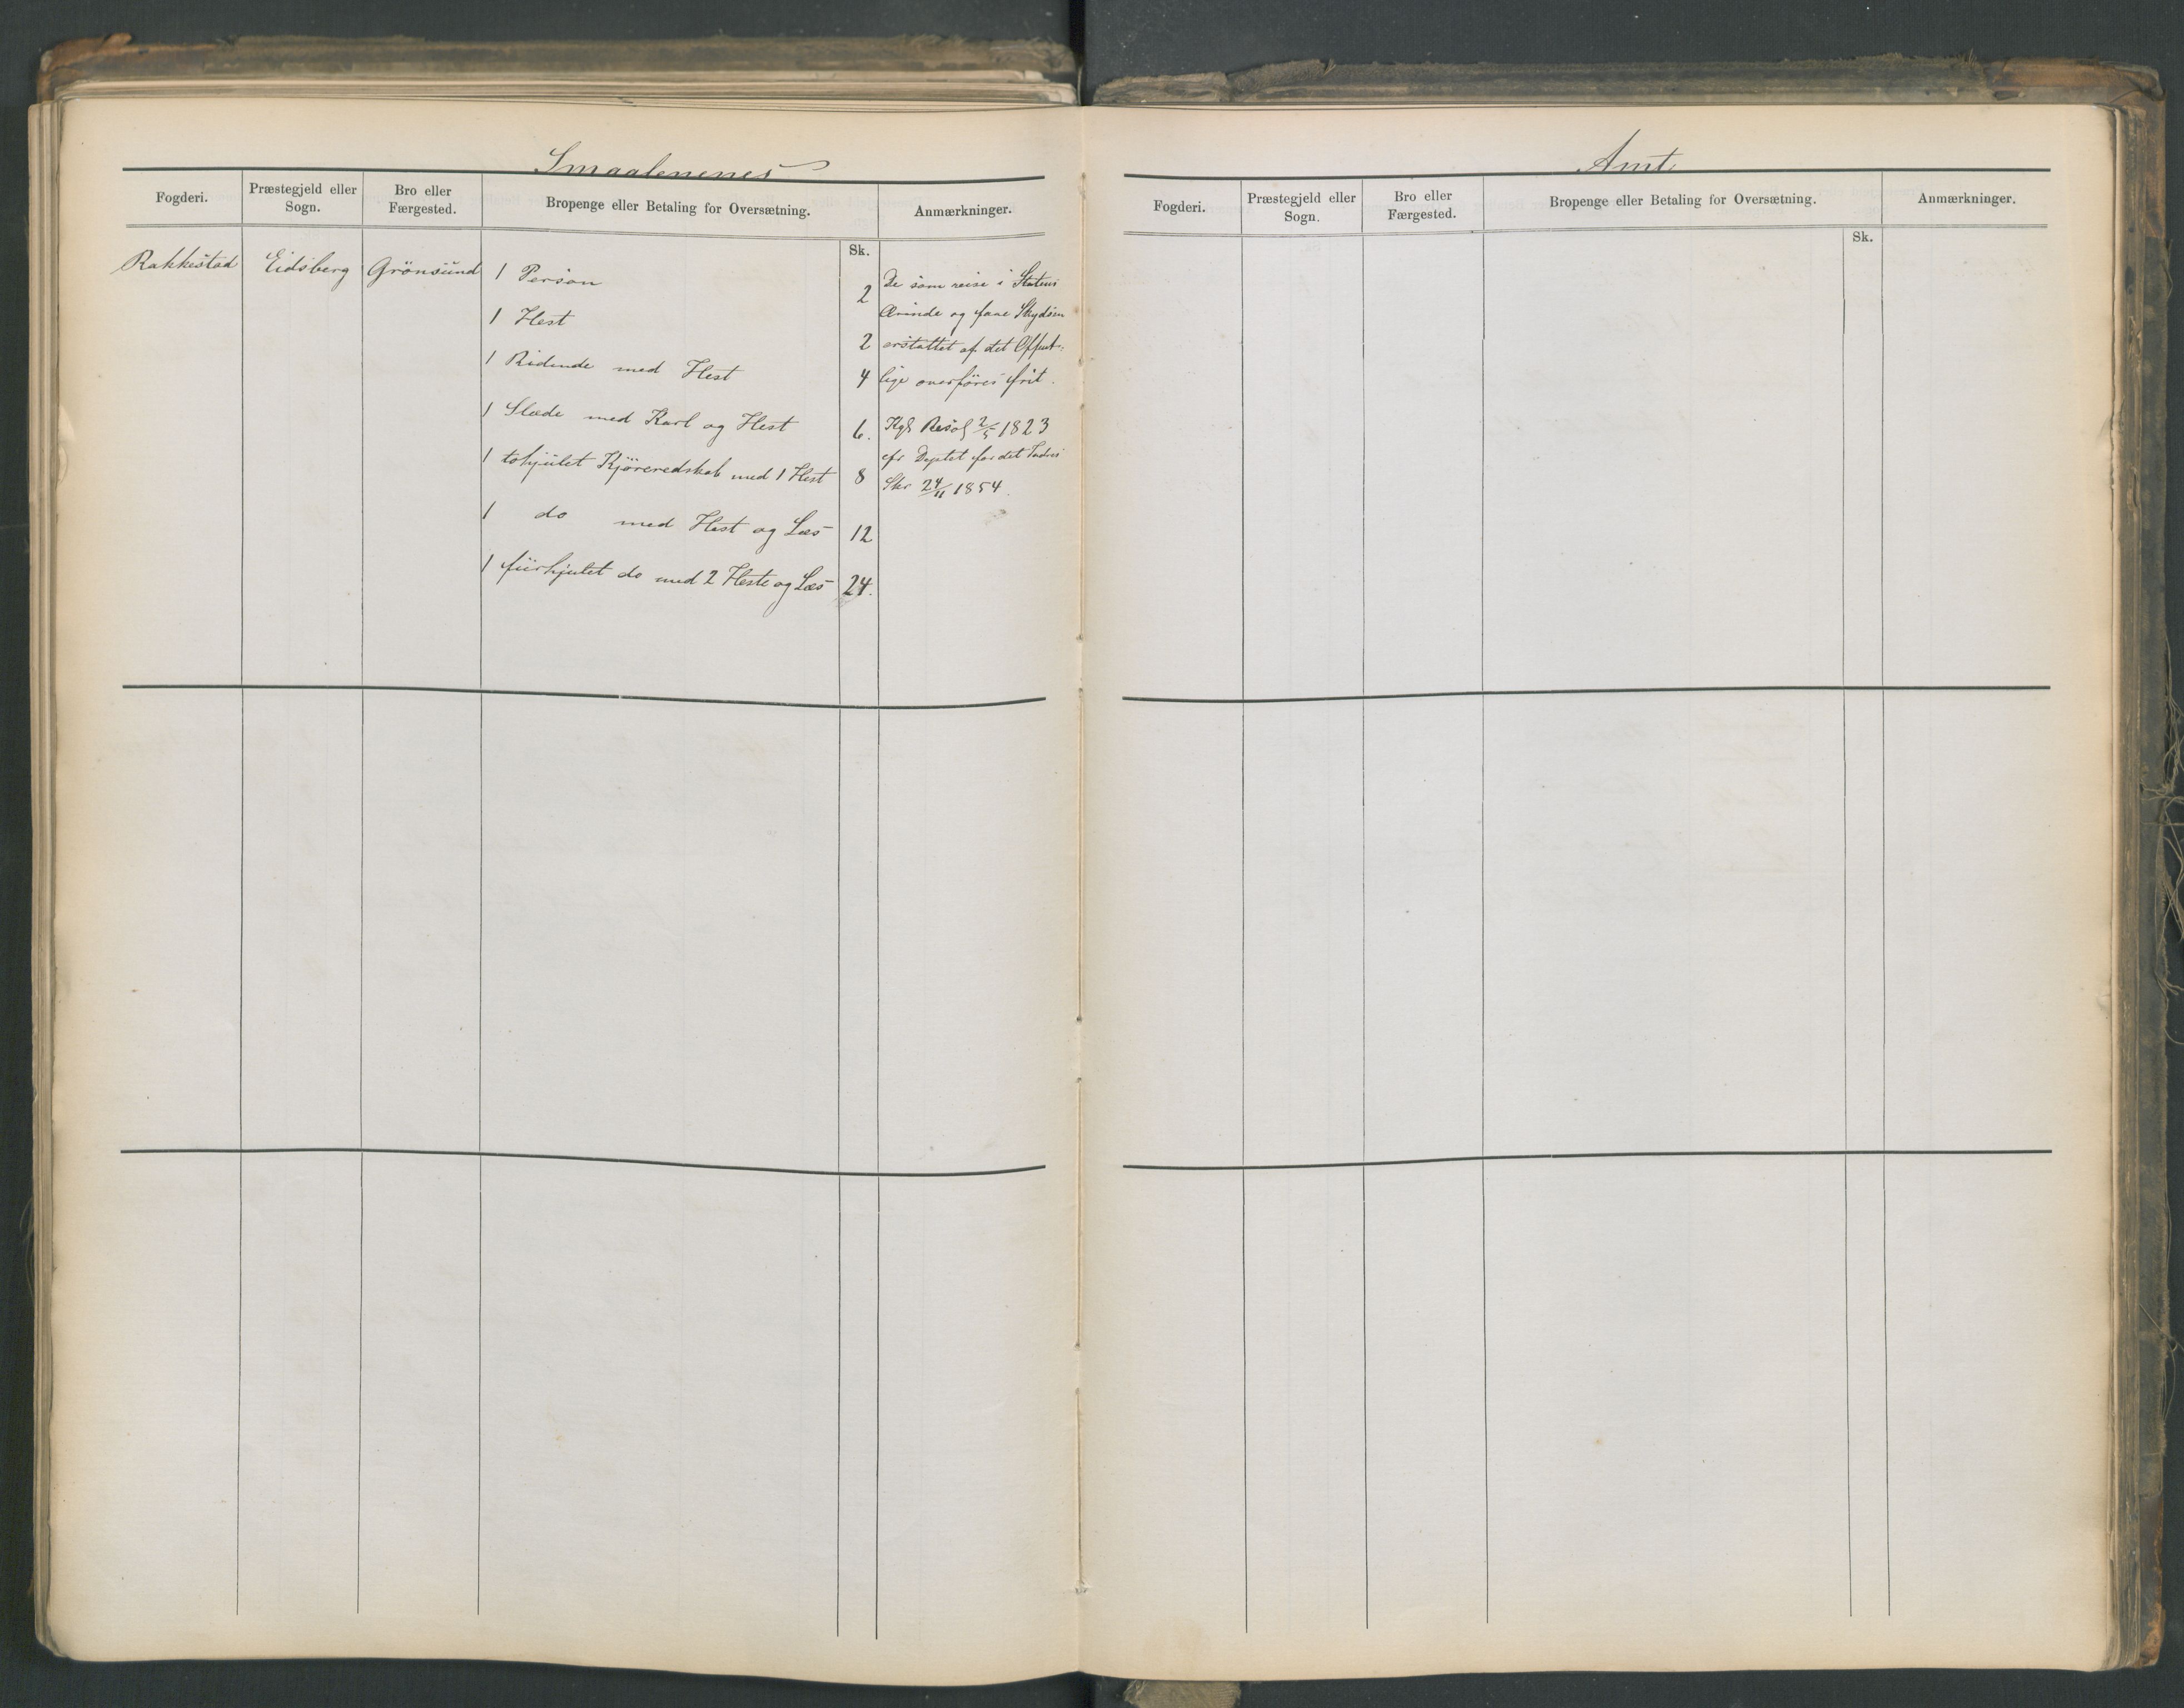 Smaalenenes
Fogderi. Præstegjeld eller Sogn. Bro eller Færgested. Bropenge eller Betaling for Oversætning. Anmærkninger.
Sk.
Rakkestad Eidsberg Grönsund 1 Person 2
1 Hest 2
1 Ridende med Hest 4
1 Slæde med Karl og Hest 6.
1 tohjulet Kjøreredskab med 1 Hest 8
1 do med Hest og Læs 12
1 fiirhjulet do med 2 Heste og Læs 24.
De som reise i Statens
Ærinde og faae Skydsen
erstattet af det Offent-
lige overføres frit.
Kgl Resol 2/5 1823
cfr Deptet for det Indres
Skr 24/11 1854.
Amt.
Fogderi. Præstegjeld eller Sogn. Bro eller Færgested. Bropenge eller Betaling for Oversætning. Anmærkninger.
Sk.